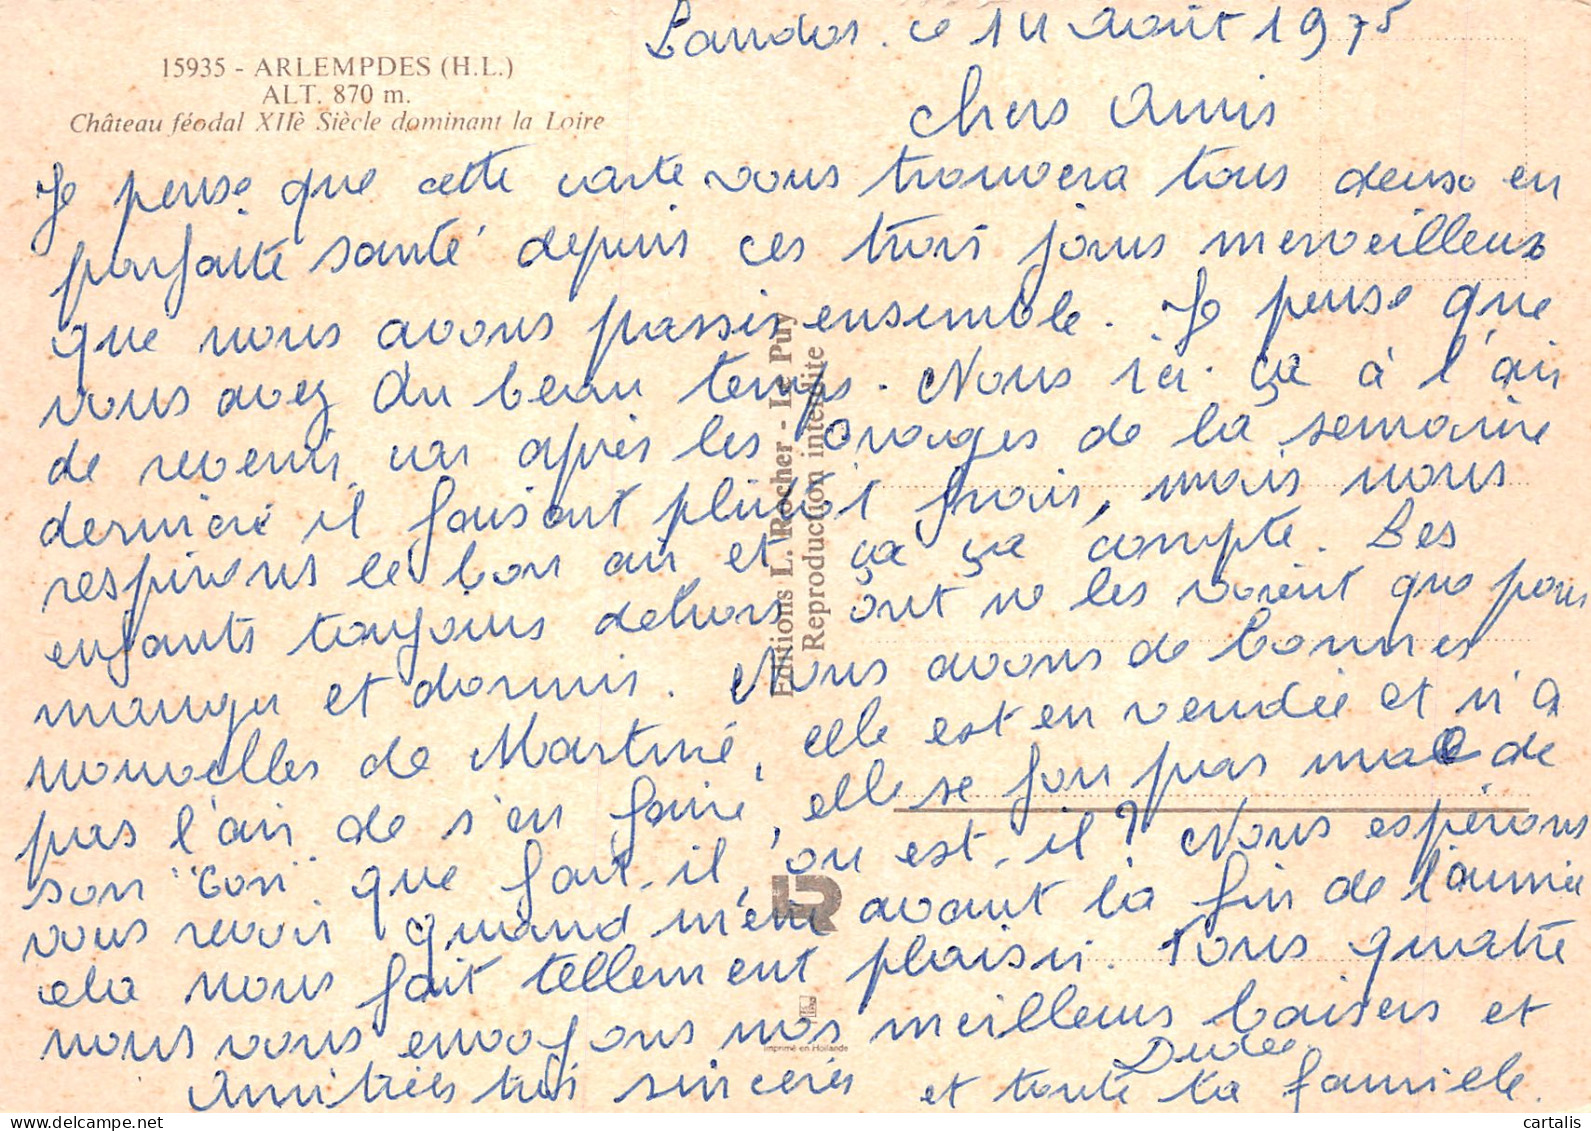 Landos. le 14 Août 1975
15935 - ARLEMPDES (H.L.)
ALT. 870 m.
Château féodal XIIè Siècle dominant la Loire
Chers Amis
Je pense que cette carte vous trouvera tous en
parfaite santé depuis ces trois jours merveilleux
que nous avons passés ensemble. Je pense que
vous avez du beau temps. Nous ici ça à l'air
de revenir car après les orages de la semaine
dernière il faisait plutôt frais, mais nous
respirons le bon air et ça ça compte. Les
enfants toujours dehors ont ne les voient que pour
manger et dormir. Nous avons de bonnes
nouvelles de Martine, elle est en vendée et n'a
pas l'air de s'en faire, elle se fou pas mal de
son "con" que fait-il, ou est-il ? Nous espérons
vous revoir quand même avant la fin de l'année
cela nous fait tellement plaisir. Tous quatre
nous vous envoyons nos meilleurs baisers et
Amitiés très sincères et toute la famille.
Editions L. Rocher - Le Puy
Reproduction interdite
LR
Imprimé en Hollande
cartalis